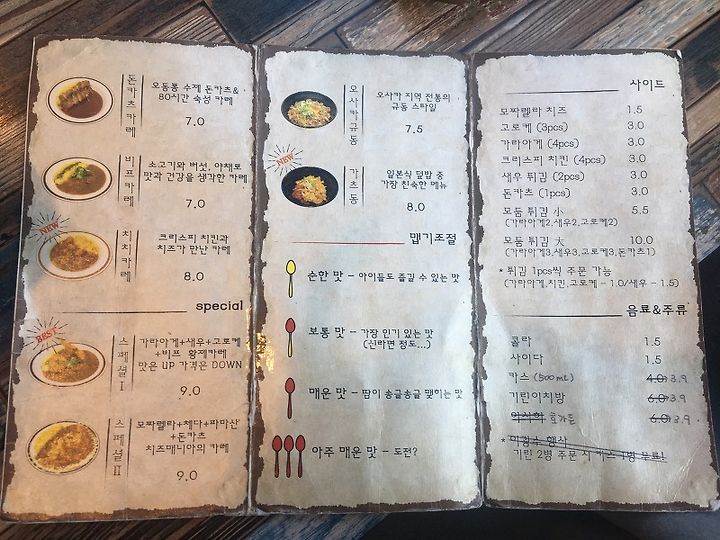 돈까츠카레
오동통 수제 돈카츠&
80시간 숙성 카레
7.0
비프카레
소고기와 버섯, 야채로
맛과 건강을 생각한 카레
7.0
NEW
치치카레
크리스피 치킨과
치즈가 만난 카레
8.0
special
BEST
스페셜 I
가라아게+새우+고로케
+비프 황제카레
맛은 UP 가격은 DOWN
9.0
스페셜 II
모짜렐라+체다+파마산
+돈카츠
치즈매니아의 카레
9.0
오사카규동
오사카 지역 전통의
규동 스타일
7.5
NEW
가츠동
일본식 덮밥 중
가장 친숙한 메뉴
8.0
맵기조절
순한 맛 - 아이들도 즐길 수 있는 맛
보통 맛 - 가장 인기 있는 맛
(신라면 정도...)
매운 맛 - 땀이 송글송글 맺히는 맛
아주 매운 맛 - 도전?
사이드
모짜렐라 치즈 1.5
고로케 (3pcs) 3.0
가라아게 (4pcs) 3.0
크리스피 치킨 (4pcs) 3.0
새우 튀김 (2pcs) 3.0
돈카츠 (1pcs) 3.0
모둠 튀김 小 5.5
(가라아게2,새우2,고로케2)
모둠 튀김 大 10.0
(가라아게3,새우3,고로케3,돈카츠1)
* 튀김 1pcs씩 주문 가능
(가라아게,치킨,고로케 - 1.0/새우 - 1.5)
음료&주류
콜라 1.5
사이다 1.5
카스 (500mL) 4.0 3.9
기린이치방 6.0 3.9
아사히 호가든 6.0 3.9
기린 2병 주문 시 카스 1병 무료!